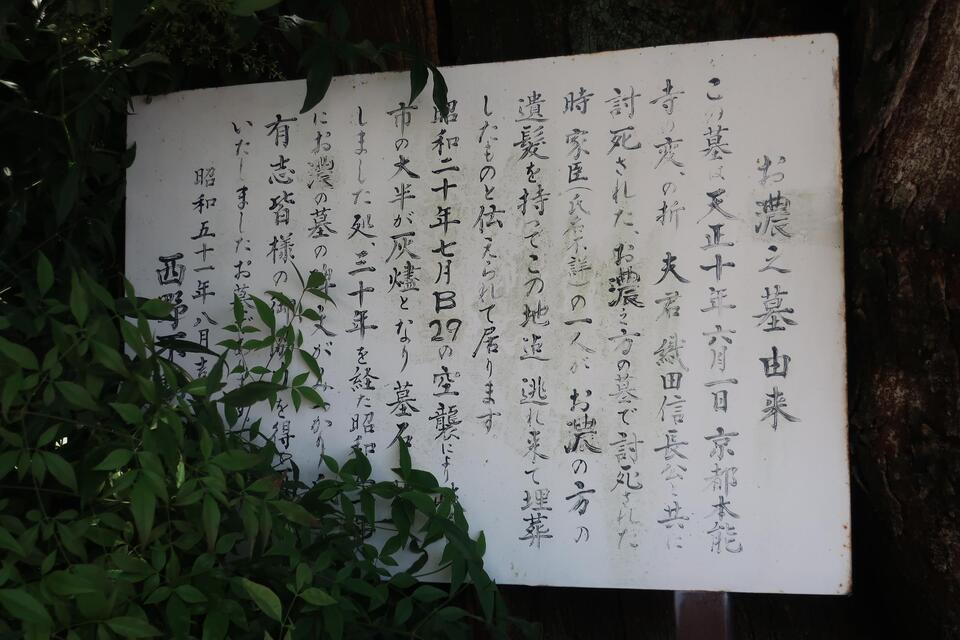 お濃之墓由来
この墓は天正十年六月一日京都本能
寺の変、の折 夫君織田信長公と共に
討死された、お濃之方の墓で討死された
時家臣(氏名不詳)の一人がお濃の方の
遺髪を持つてこの地迄逃れ来て埋葬
したものと伝えられて居ります
昭和二十年七月B29の空襲により
市の大半が灰燼となり墓石
しました処、三十年を経た昭和
にお濃の墓の
有志皆様の御 を得
いたしましたお墓
昭和五十一年八月吉
西野不